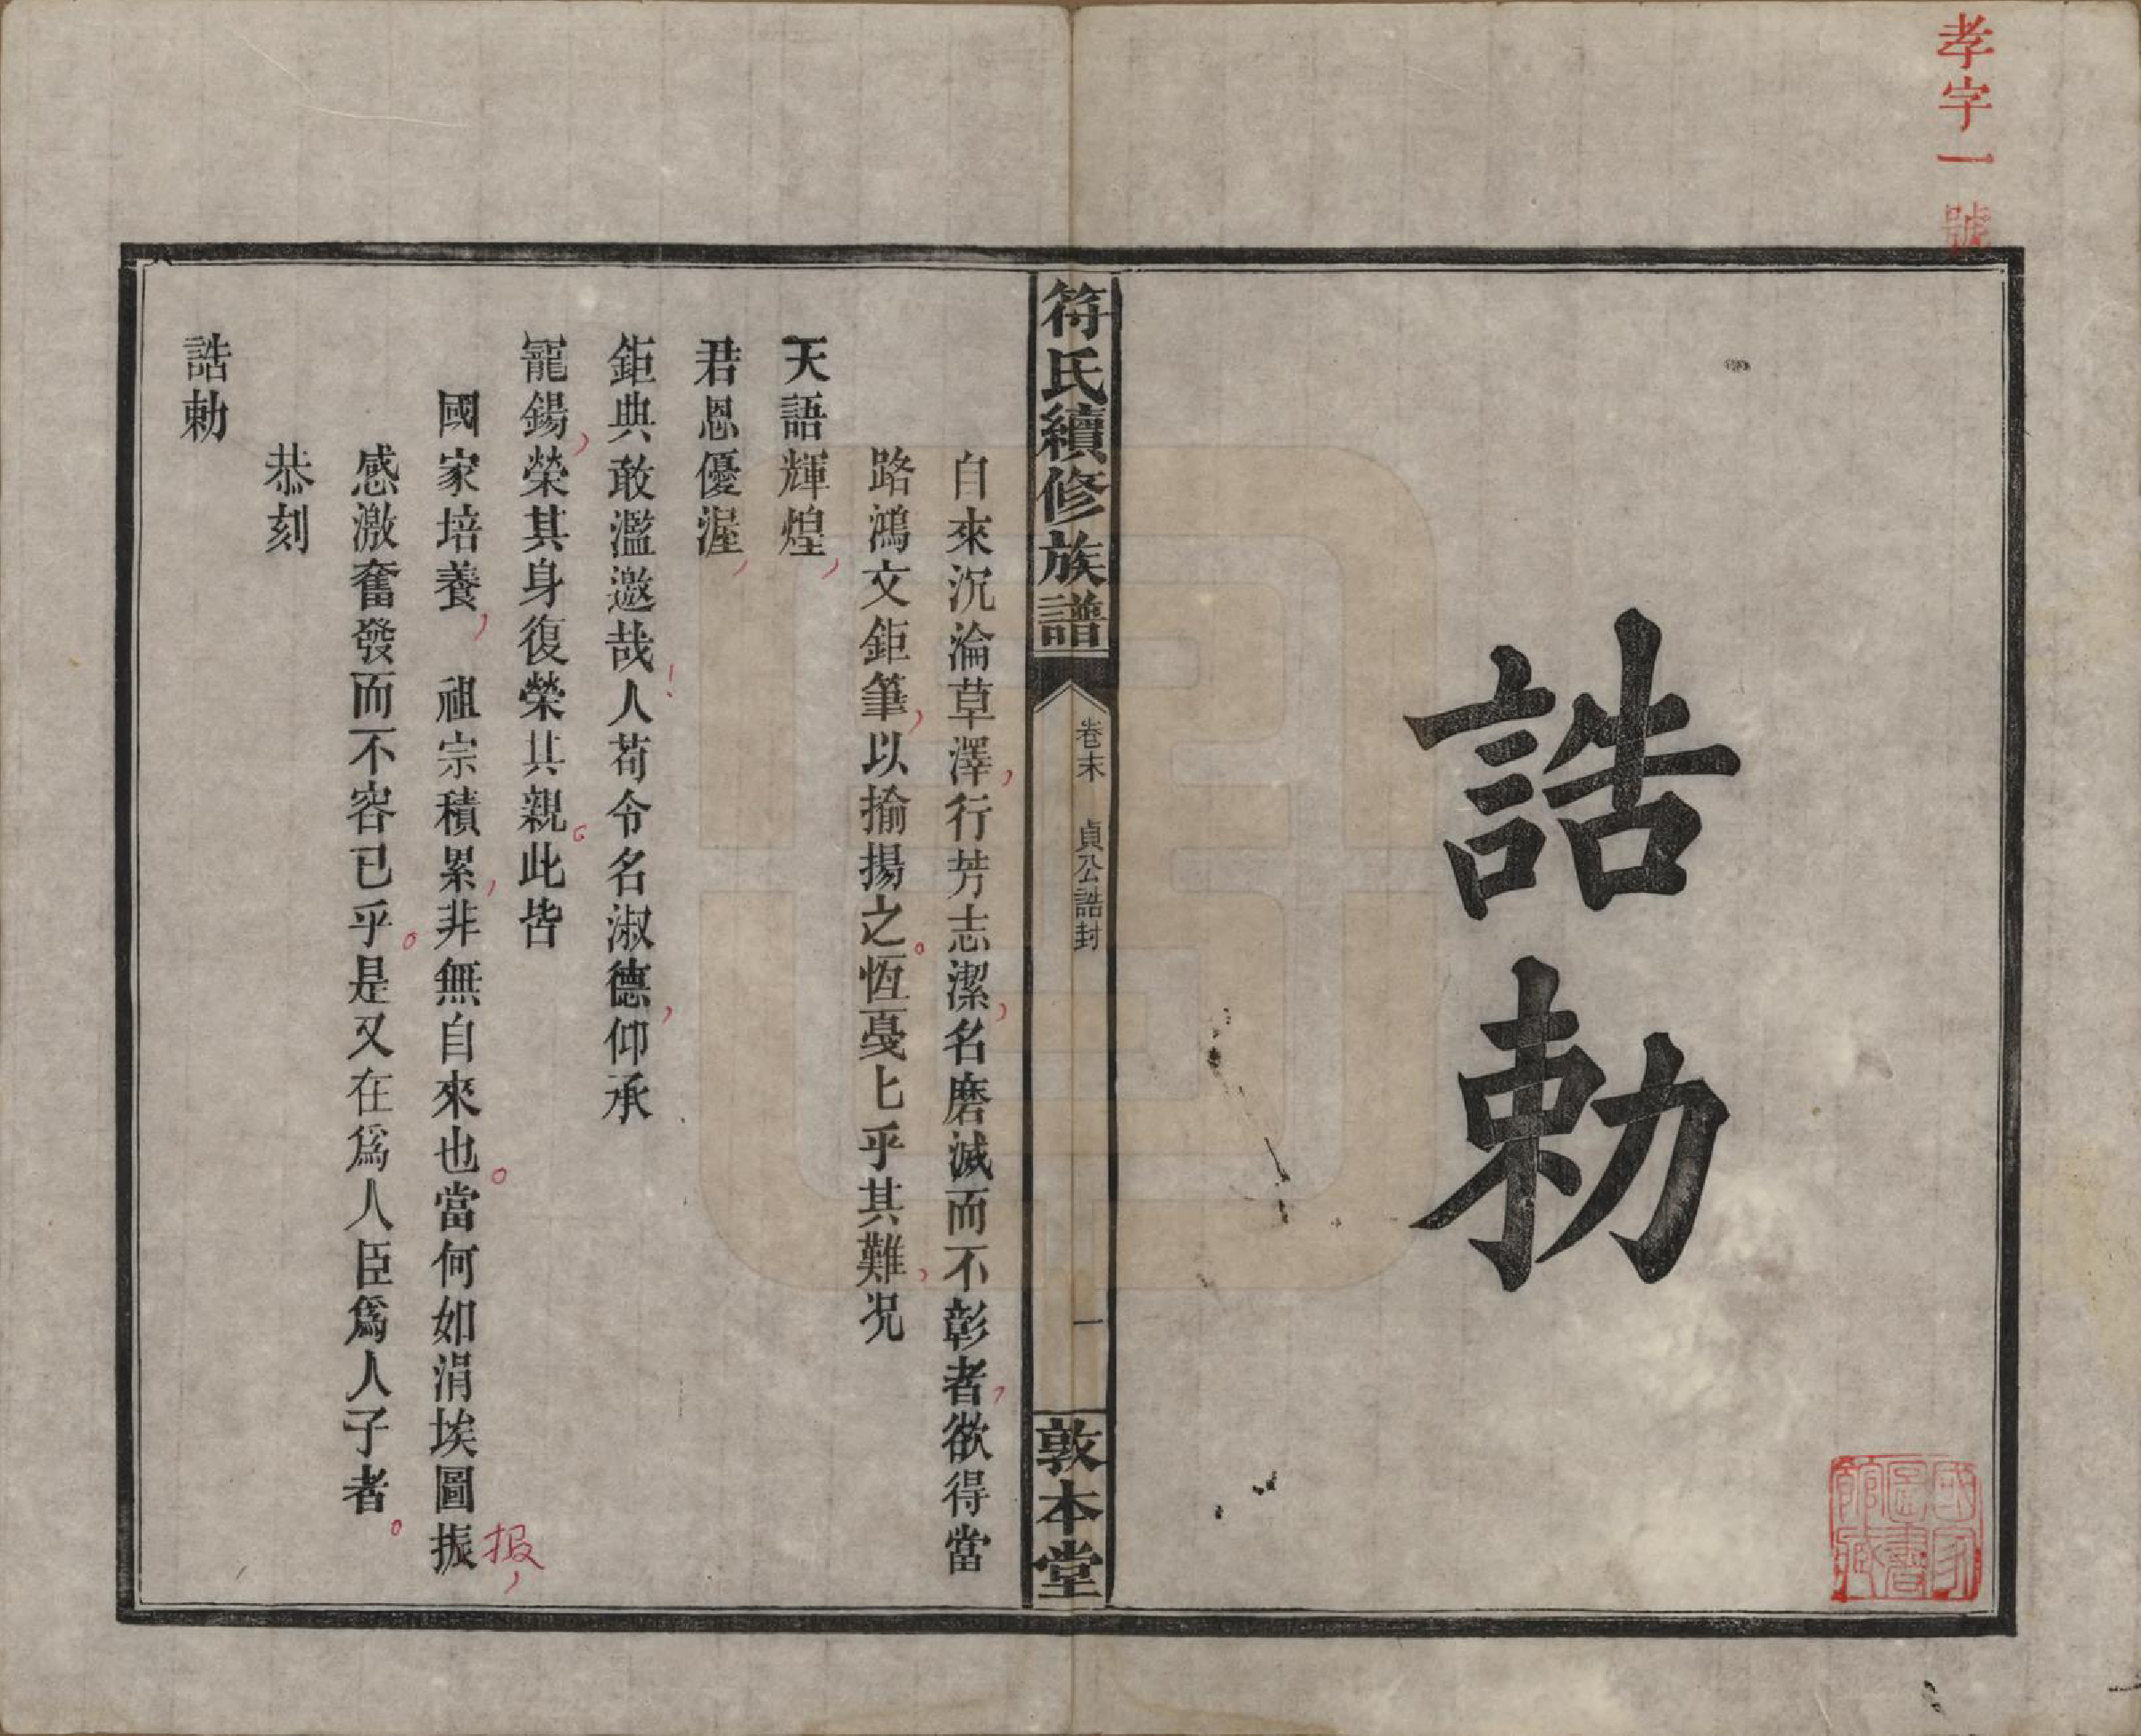 孝字一號
誥勅
國家圖書館藏
符氏續修族譜
卷末　貞公誥封
一
敦本堂
自來沉淪草澤，行芳志潔，名磨滅而不彰者，欲得當
路鴻文鉅筆，以揄揚之。恆戞匕乎其難，况
天語輝煌，
君恩優渥，
鉅典敢濫邀哉！人苟令名淑德，仰承
寵錫，榮其身復榮其親。此皆
國家培養，祖宗積累，非無自來也。當何如涓埃圖振
报，
感激奮發而不容已乎。是又在爲人臣爲人子者。
恭刻
誥勅